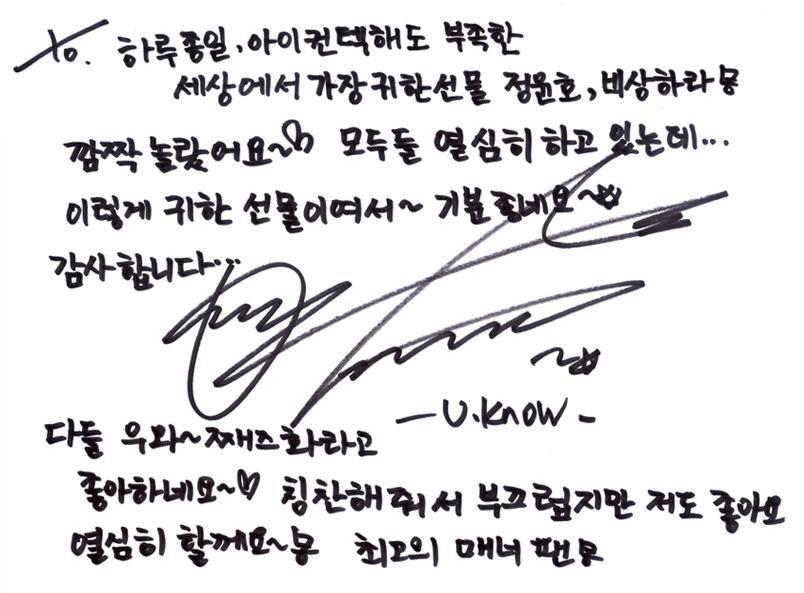 To. 하루종일, 아이컨텍해도 부족한
세상에서 가장 귀한선물 정윤호, 비상하라 뿅
깜짝 놀랐어요~♡ 모두들 열심히 하고 있는데...
이렇게 귀한 선물이여서~ 기분 좋네요~
감사합니다...
- U.KNOW -
다들 우와~ 째즈화라고
좋아하네요~♡ 칭찬해줘서 부끄럽지만 저도 좋아요
열심히 할께요~ 뿅 최고의 매너 팬